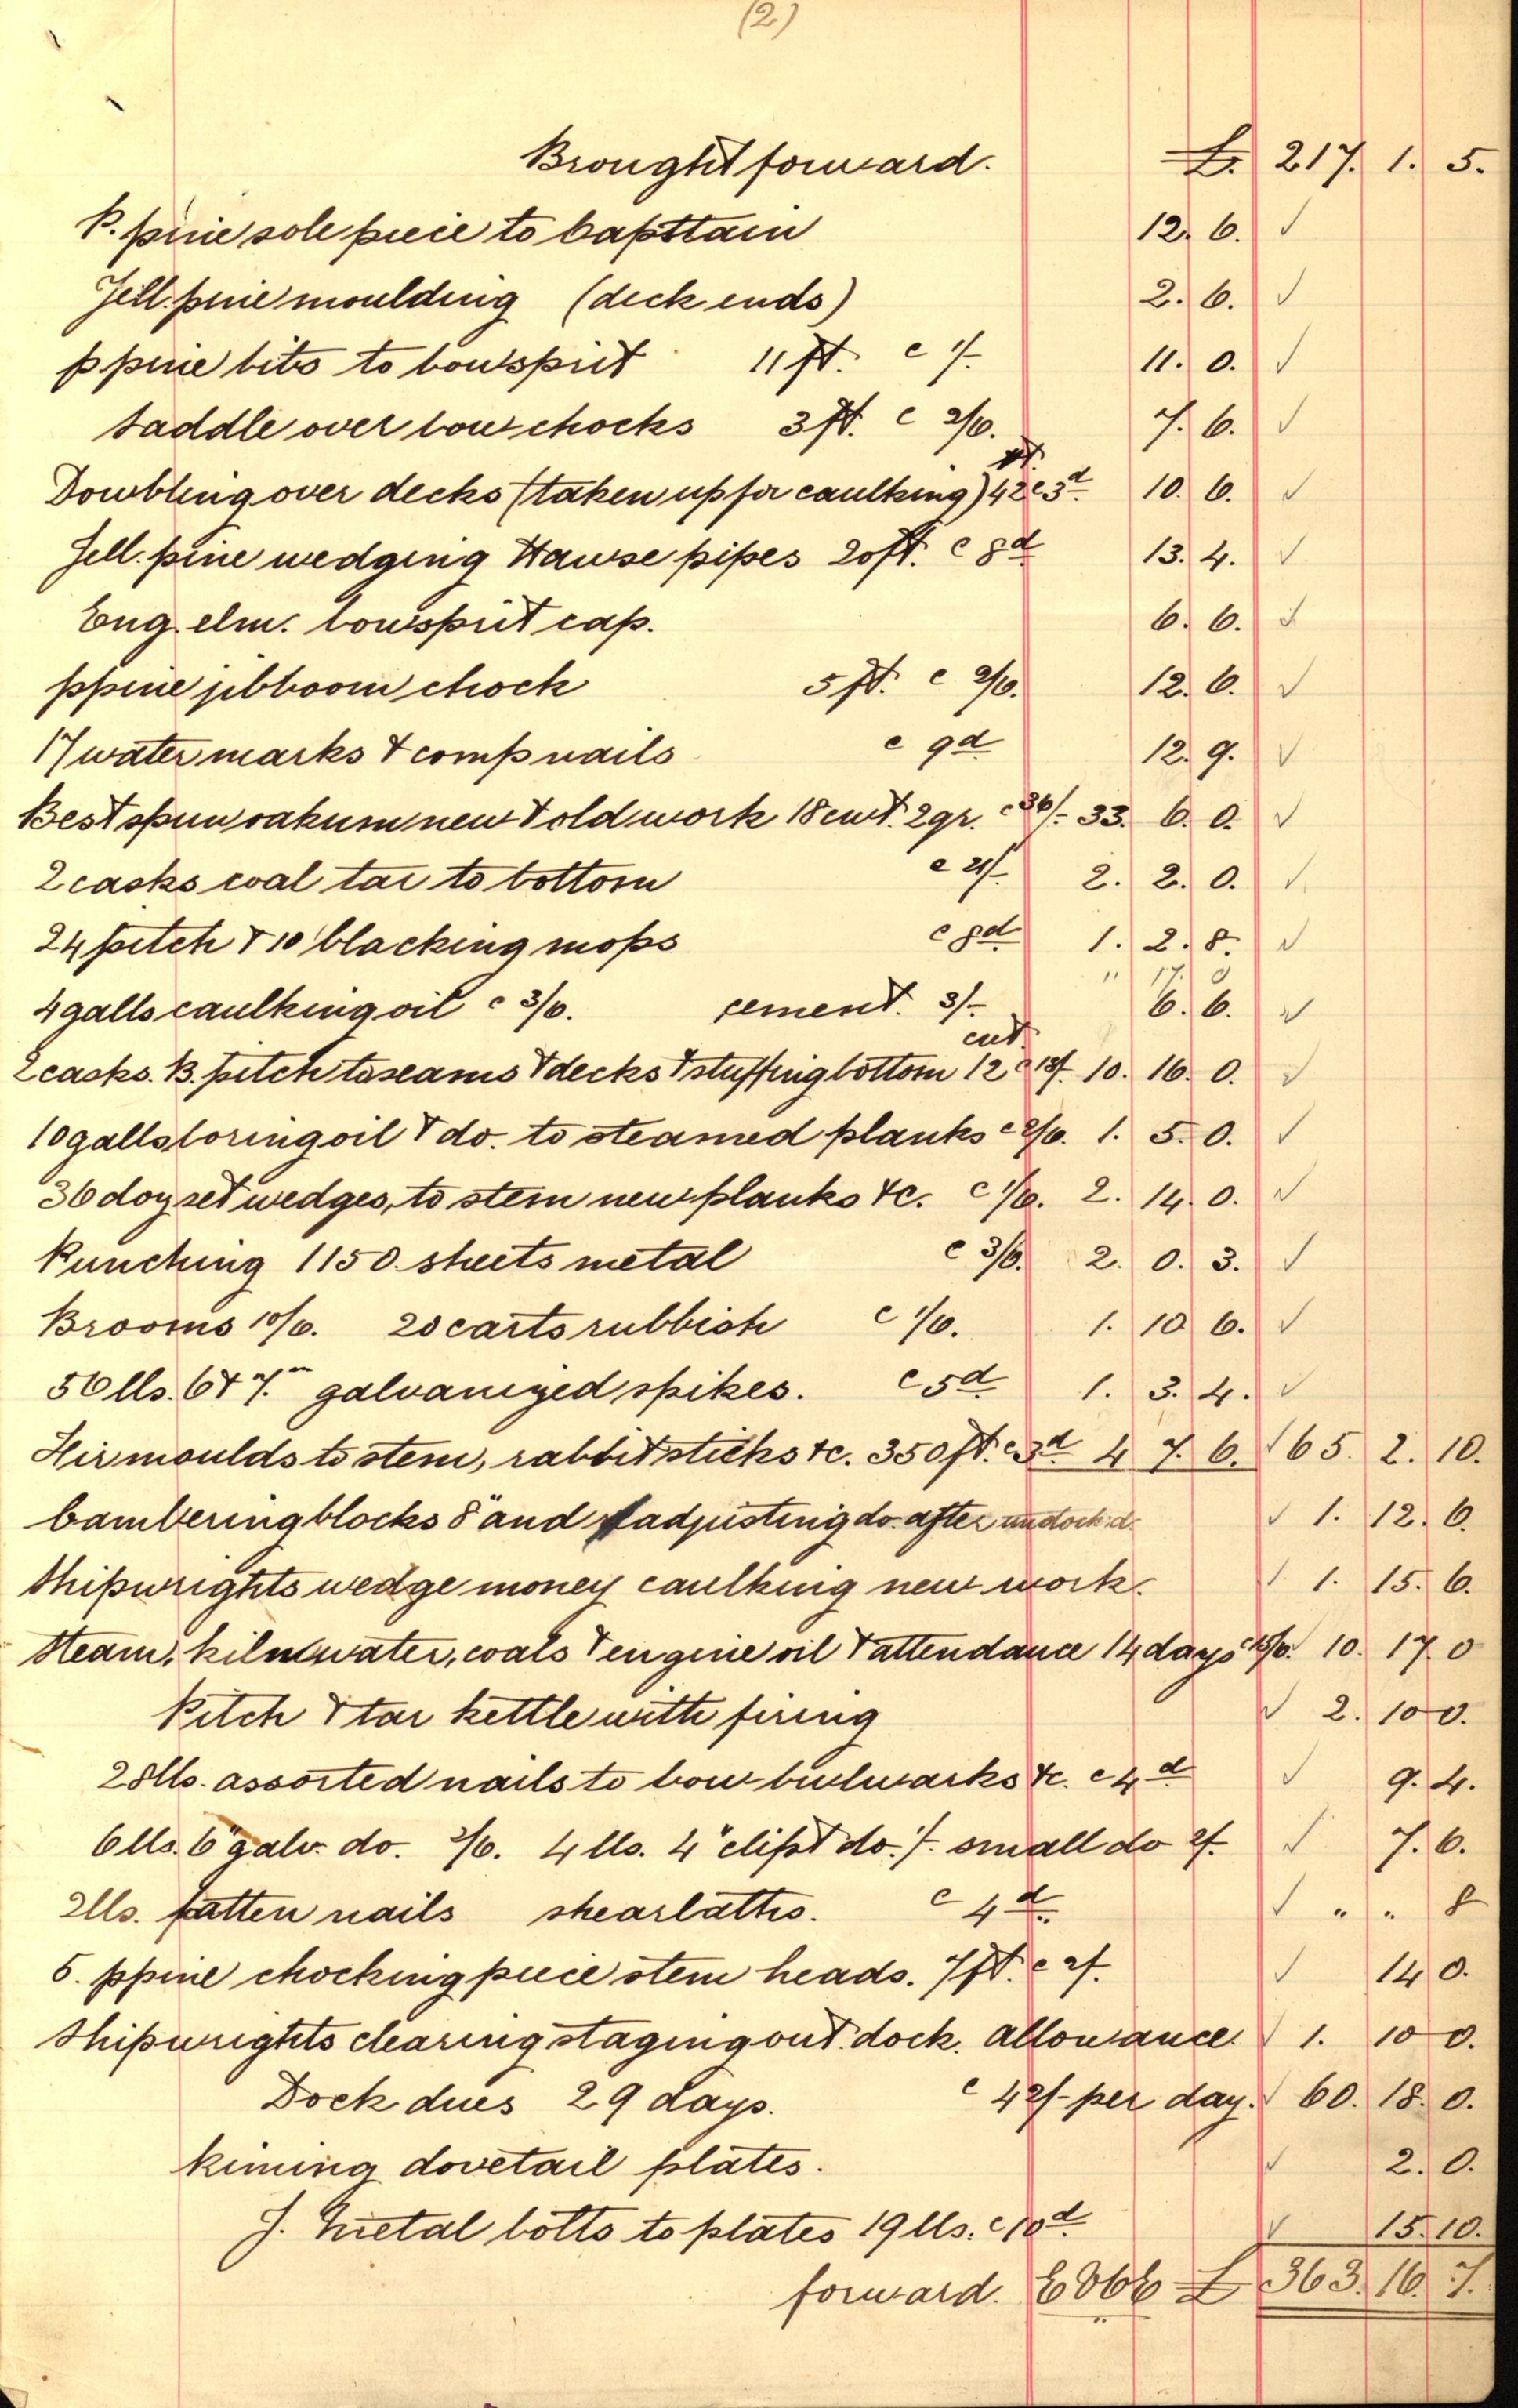 (2)
Brought forward. £. 217. 1. 5.
P. pine sole piece to Capstain 12. 6. ✓
Yell. pine moulding (deck ends) 2. 6. ✓
p pine bits to bowsprit 11 ft. @ 1/- 11. 0. ✓
Saddle over bow chocks 3 ft. @ 2/6. 7. 6. ✓
Dowbling over decks (taken up for caulking) 42 ft @ 3d. 10. 6. ✓
Yell. pine wedging Hawse pipes 20 ft. @ 8d 13. 4. ✓
Eng. elm. bowsprit cap. 6. 6. ✓
p pine jibboom chock 5 ft. @ 2/6. 12. 6. ✓
17 water marks & comp nails @ 9d 12. 9. ✓
Best spun oakum new & old work 18 cwt. 2 qr. @ 36/- 33. 6. 0. ✓
2 casks coal tar to bottom @ 21/- 2. 2. 0. ✓
24 pitch & 10 blacking mops @ 8d 1. 2. 8. ✓
" 17. 0
4 galls caulking oil @ 3/6. cement. 3/- 6. 6. ✓
2 casks. B. pitch to seams & decks & stuffing bottom 12 cwt @ 18/- 10. 16. 0. ✓
10 galls boring oil & do. to steamed planks @ 2/6. 1. 5. 0. ✓
36 doz set wedges, to stem new planks &c. @ 1/6. 2. 14. 0. ✓
Punching 1150. sheets metal @ 3/6. 2. 0. 3. ✓
Brooms 10/6. 20 carts rubbish @ 1/6. 1. 10 6. ✓
56 lbs. 6 & 7" galvanized spikes. @ 5d 1. 3. 4. ✓
Fir moulds to stem, rabbit sticks &c. 350 ft. @ 3d 4 7. 6. ✓ 65. 2. 10.
Cambering blocks 8" and adjusting do. after undock.d. ✓ 1. 12. 6.
Shipwrights wedge money caulking new work. ✓ 1. 15. 6.
Steam, kiln water, coals & engine oil & attendance 14 days @ 15/6. 10. 17. 0
Pitch & tar kettle with firing ✓ 2. 10 0.
28 lbs. assorted nails to bow bulwarks &c. @ 4d ✓ 9. 4.
6 lbs. 6" galv. do. 2/6. 4 lbs. 4" clipt do. 1/- small do 2/- ✓ 7. 6.
2 lbs. fatten nails shearlaths. @ 4d. ✓ " " 8
5. p pine chocking piece stem heads. 7 ft. @ 2/- ✓ 14 0.
Shipwrights clearing staging out. dock. allowance. ✓ 1. 10 0.
Dock dues 29 days. @ 42/- per day. ✓ 60. 18. 0.
Riming dovetail plates. ✓ 2. 0.
Y. Metal bolts to plates 19 lbs. @ 10d. ✓ 15. 10.
forward. £ 363. 16. 7.